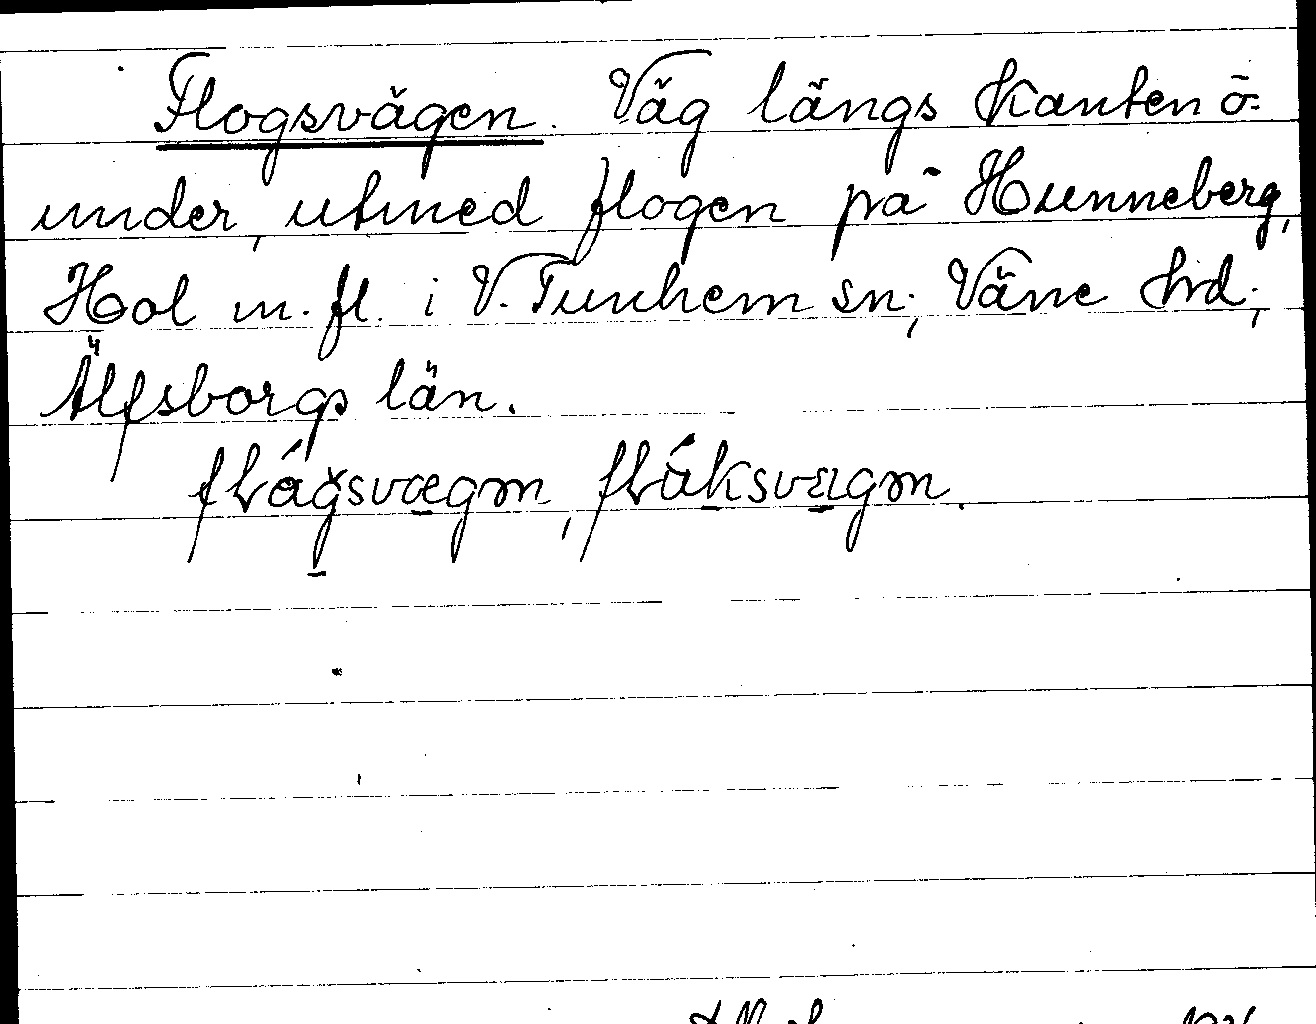 Flogsvägen. Väg längs kanten ö-
under, utmed flogen på Hunneberg,
Hol m.fl. i V. Tunhem sn; Väne hd;
Älfsborgs län.